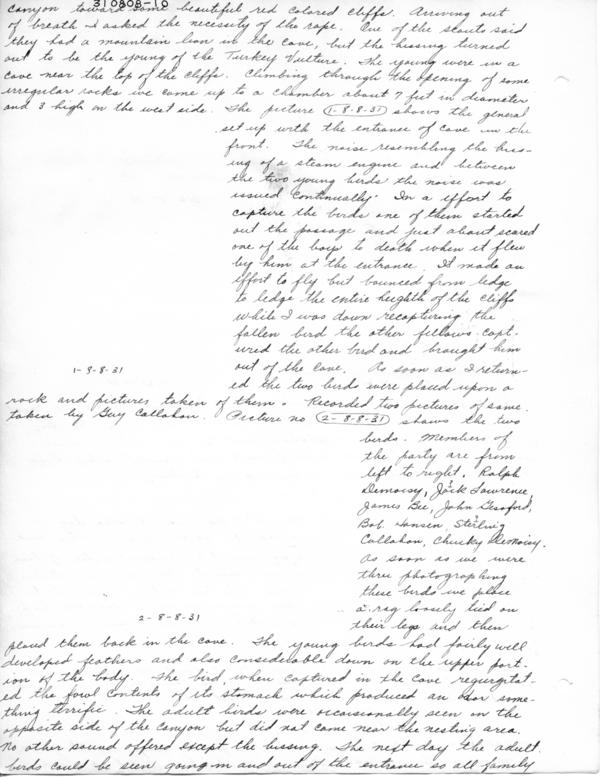 310808-10
canyon toward some beautiful red colored cliffs. Arriving out
of breath I asked the necessity of the rope. One of the scouts said
they had a mountain lion in the cave, but the hissing turned
out to be the young of the Turkey Vulture. The young were in a
cave near the top of the cliffs. Climbing through the opening of some
irregular rocks we came up to a chamber about 7 feet in diameter
and 3 high on the west side. The picture 1-8-8-31 shows the general
set up with the entrance of cave in the
front. The noise resembling the hiss-
ing of a steam engine and between
the two young birds the noise was
issued continually. In a effort to
capture the birds one of them started
out the passage and just about scared
one of the boys to death when it flew
by him at the entrance. It made an
effort to fly but bounced from ledge
to ledge the entire heighth of the cliffs
while I was down recapturing the
fallen bird the other fellows capt-
ured the other bird and brought him
out of the cave. As soon as I return-
1-9-8-31
ed the two birds were placed upon a
rock and pictures taken of them. Recorded two pictures of same
taken by Guy Callahan. Picture no 2-8-8-31 shows the two
birds. Members of
the party are from
left to right. Ralph
Demoisy, Jack Lawrence,
James Bee, John
Bob Hansen, Sterling
Callahan, Chucky DeMoisy.
As soon as we were
thru photographing
these birds we place
a rag loosely tied on
2-8-8-31
their legs and then
placed them back in the cave. The young birds had fairly well
developed feathers and also considerable down on the upper port-
ion of the body. The bird when captured in the cave regurgitat-
ed the fowl contents of its stomach which produced an odor some-
thing terrific. The adult birds were occassionally seen on the
opposite side of the canyon but did not come near the nesting area.
No other sound offered except the hissing. The next day the adult
birds could be seen going in and out of the entrance so all family